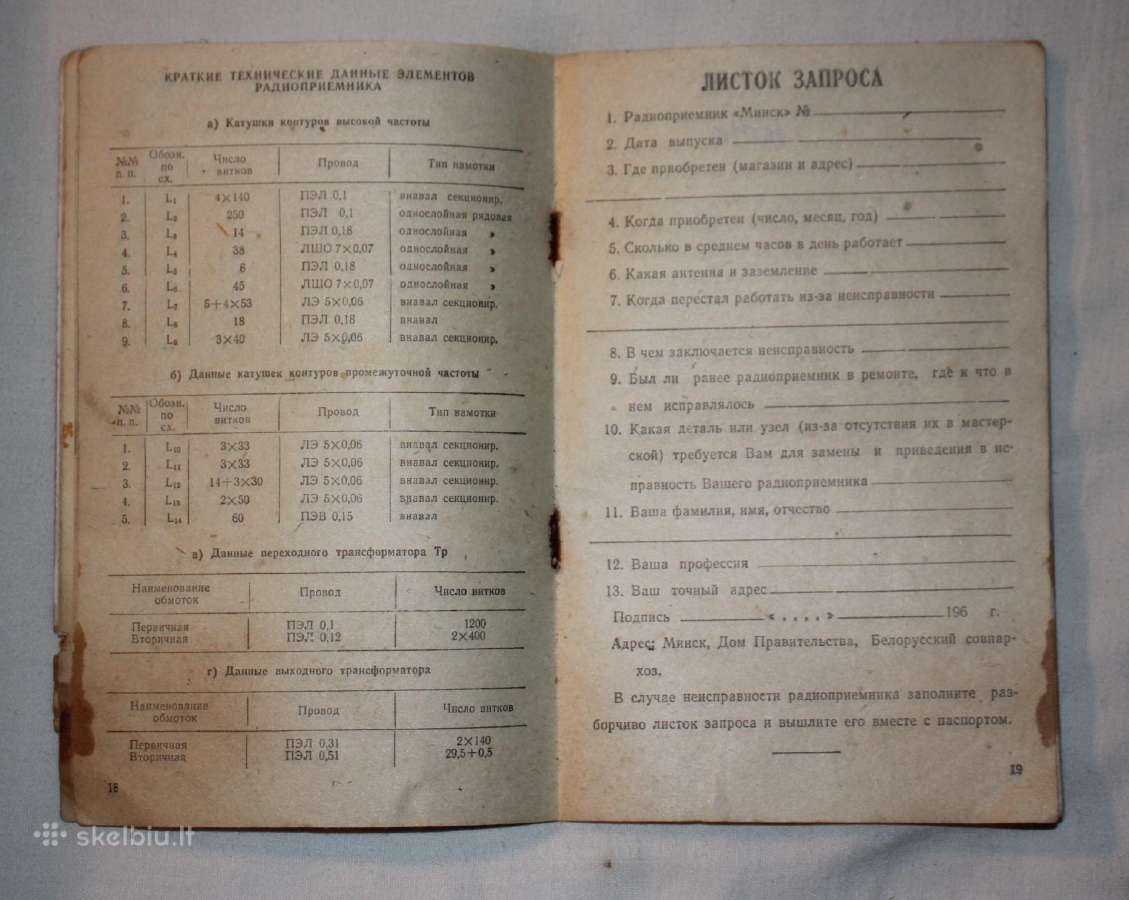 КРАТКИЕ ТЕХНИЧЕСКИЕ ДАННЫЕ ЭЛЕМЕНТОВ
РАДИОПРИЕМНИКА
а) Катушки контуров высокой частоты
№№ п. п. Обозн. по сх. Число витков Провод Тип намотки
1. L₁ 4×140 ПЭЛ 0,1 внавал секционир.
2. L₂ 250 ПЭЛ 0,1 однослойная рядовая
3. L₃ 14 ПЭЛ 0,18 однослойная »
4. L₄ 38 ЛШО 7×0,07 однослойная »
5. L₅ 6 ПЭЛ 0,18 однослойная »
6. L₆ 45 ЛШО 7×0,07 однослойная »
7. L₇ 5+4×53 ЛЭ 5×0,06 внавал секционир.
8. L₈ 18 ПЭЛ 0,18 внавал
9. L₉ 3×40 ЛЭ 5×0,06 внавал секционир.
б) Данные катушек контуров промежуточной частоты
№№ п. п. Обозн. по сх. Число витков Провод Тип намотки
1. L₁₀ 3×33 ЛЭ 5×0,06 внавал секционир.
2. L₁₁ 3×33 ЛЭ 5×0,06 внавал секционир.
3. L₁₂ 14+3×30 ЛЭ 5×0,06 внавал секционир.
4. L₁₃ 2×50 ЛЭ 5×0,06 внавал секционир.
5. L₁₄ 60 ПЭВ 0,15 внавал
в) Данные переходного трансформатора Тр
Наименование обмоток Провод Число витков
Первичная ПЭЛ 0,1 1200
Вторичная ПЭЛ 0,12 2×400
г) Данные выходного трансформатора
Наименование обмоток Провод Число витков
Первичная ПЭЛ 0,31 2×140
Вторичная ПЭЛ 0,51 29,5+0,5
18
ЛИСТОК ЗАПРОСА
1. Радиоприемник «Минск» №
2. Дата выпуска
3. Где приобретен (магазин и адрес)
4. Когда приобретен (число, месяц, год)
5. Сколько в среднем часов в день работает
6. Какая антенна и заземление
7. Когда перестал работать из-за неисправности
8. В чем заключается неисправность
9. Был ли ранее радиоприемник в ремонте, где и что в
нем исправлялось
10. Какая деталь или узел (из-за отсутствия их в мастер-
ской) требуется Вам для замены и приведения в ис-
правность Вашего радиоприемника
11. Ваша фамилия, имя, отчество
12. Ваша профессия
13. Ваш точный адрес
Подпись « . . . . » 196 г.
Адрес: Минск, Дом Правительства, Белорусский совнар-
хоз.
В случае неисправности радиоприемника заполните раз-
борчиво листок запроса и вышлите его вместе с паспортом.
19
skelbiu.lt